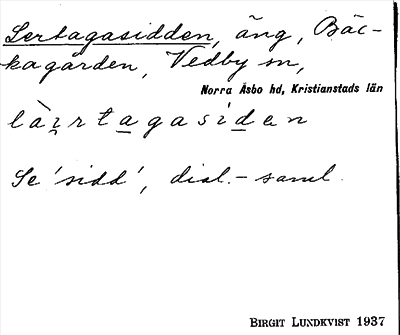 Lertagasidden, äng, Bäc-
kagården, Vedby sn,
Norra Åsbo hd, Kristianstads län
Se 'sidd', dial.- saml.
BIRGIT LUNDKVIST 1937